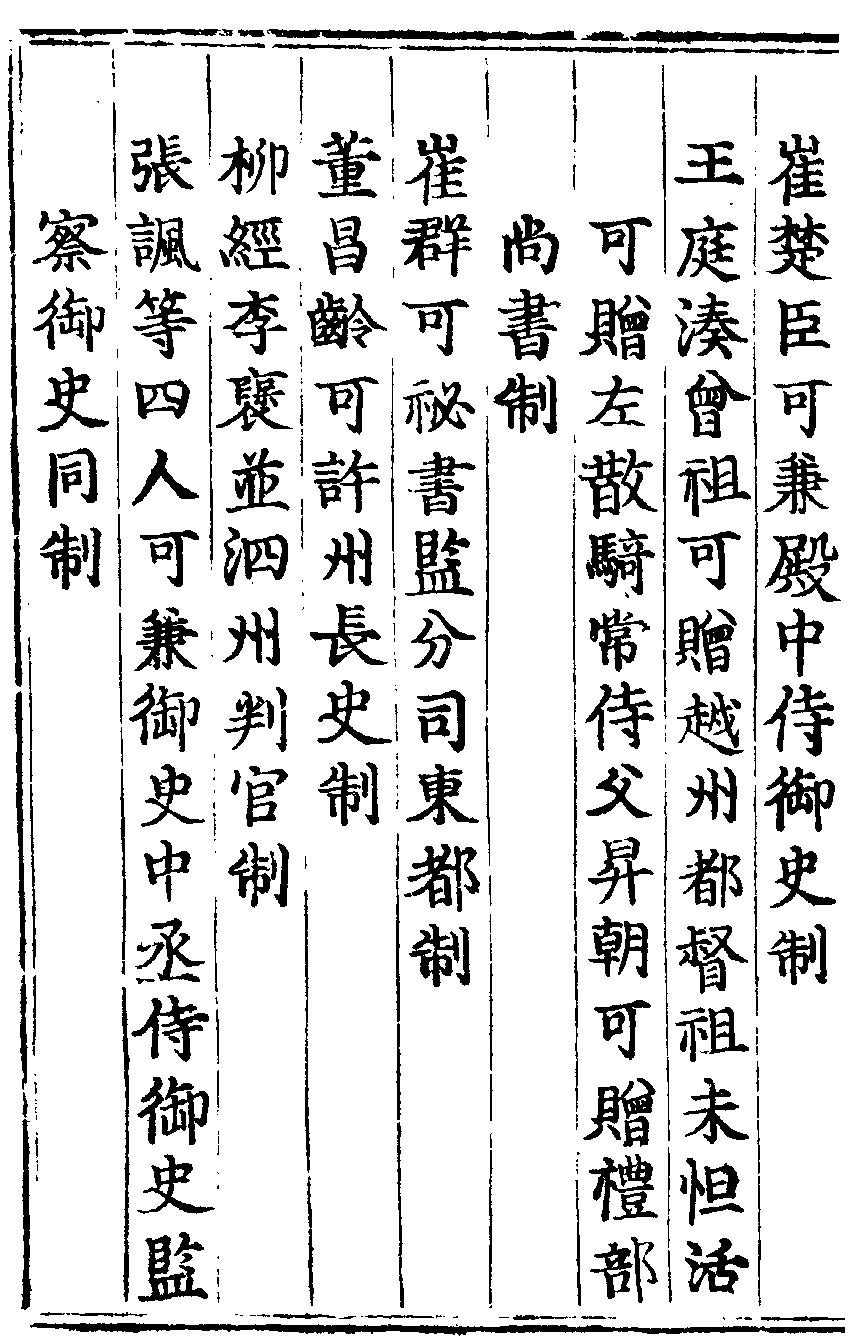 崔楚臣可兼殿中侍御史制
王庭湊曾祖可贈越州都督祖未怛活
可贈左散騎常侍父昇朝可贈禮部
尚書制
崔群可祕書監分司東都制
董昌齡可許州長史制
柳經李褒並泗州判官制
張諷等四人可兼御史中丞侍御史監
察御史同制